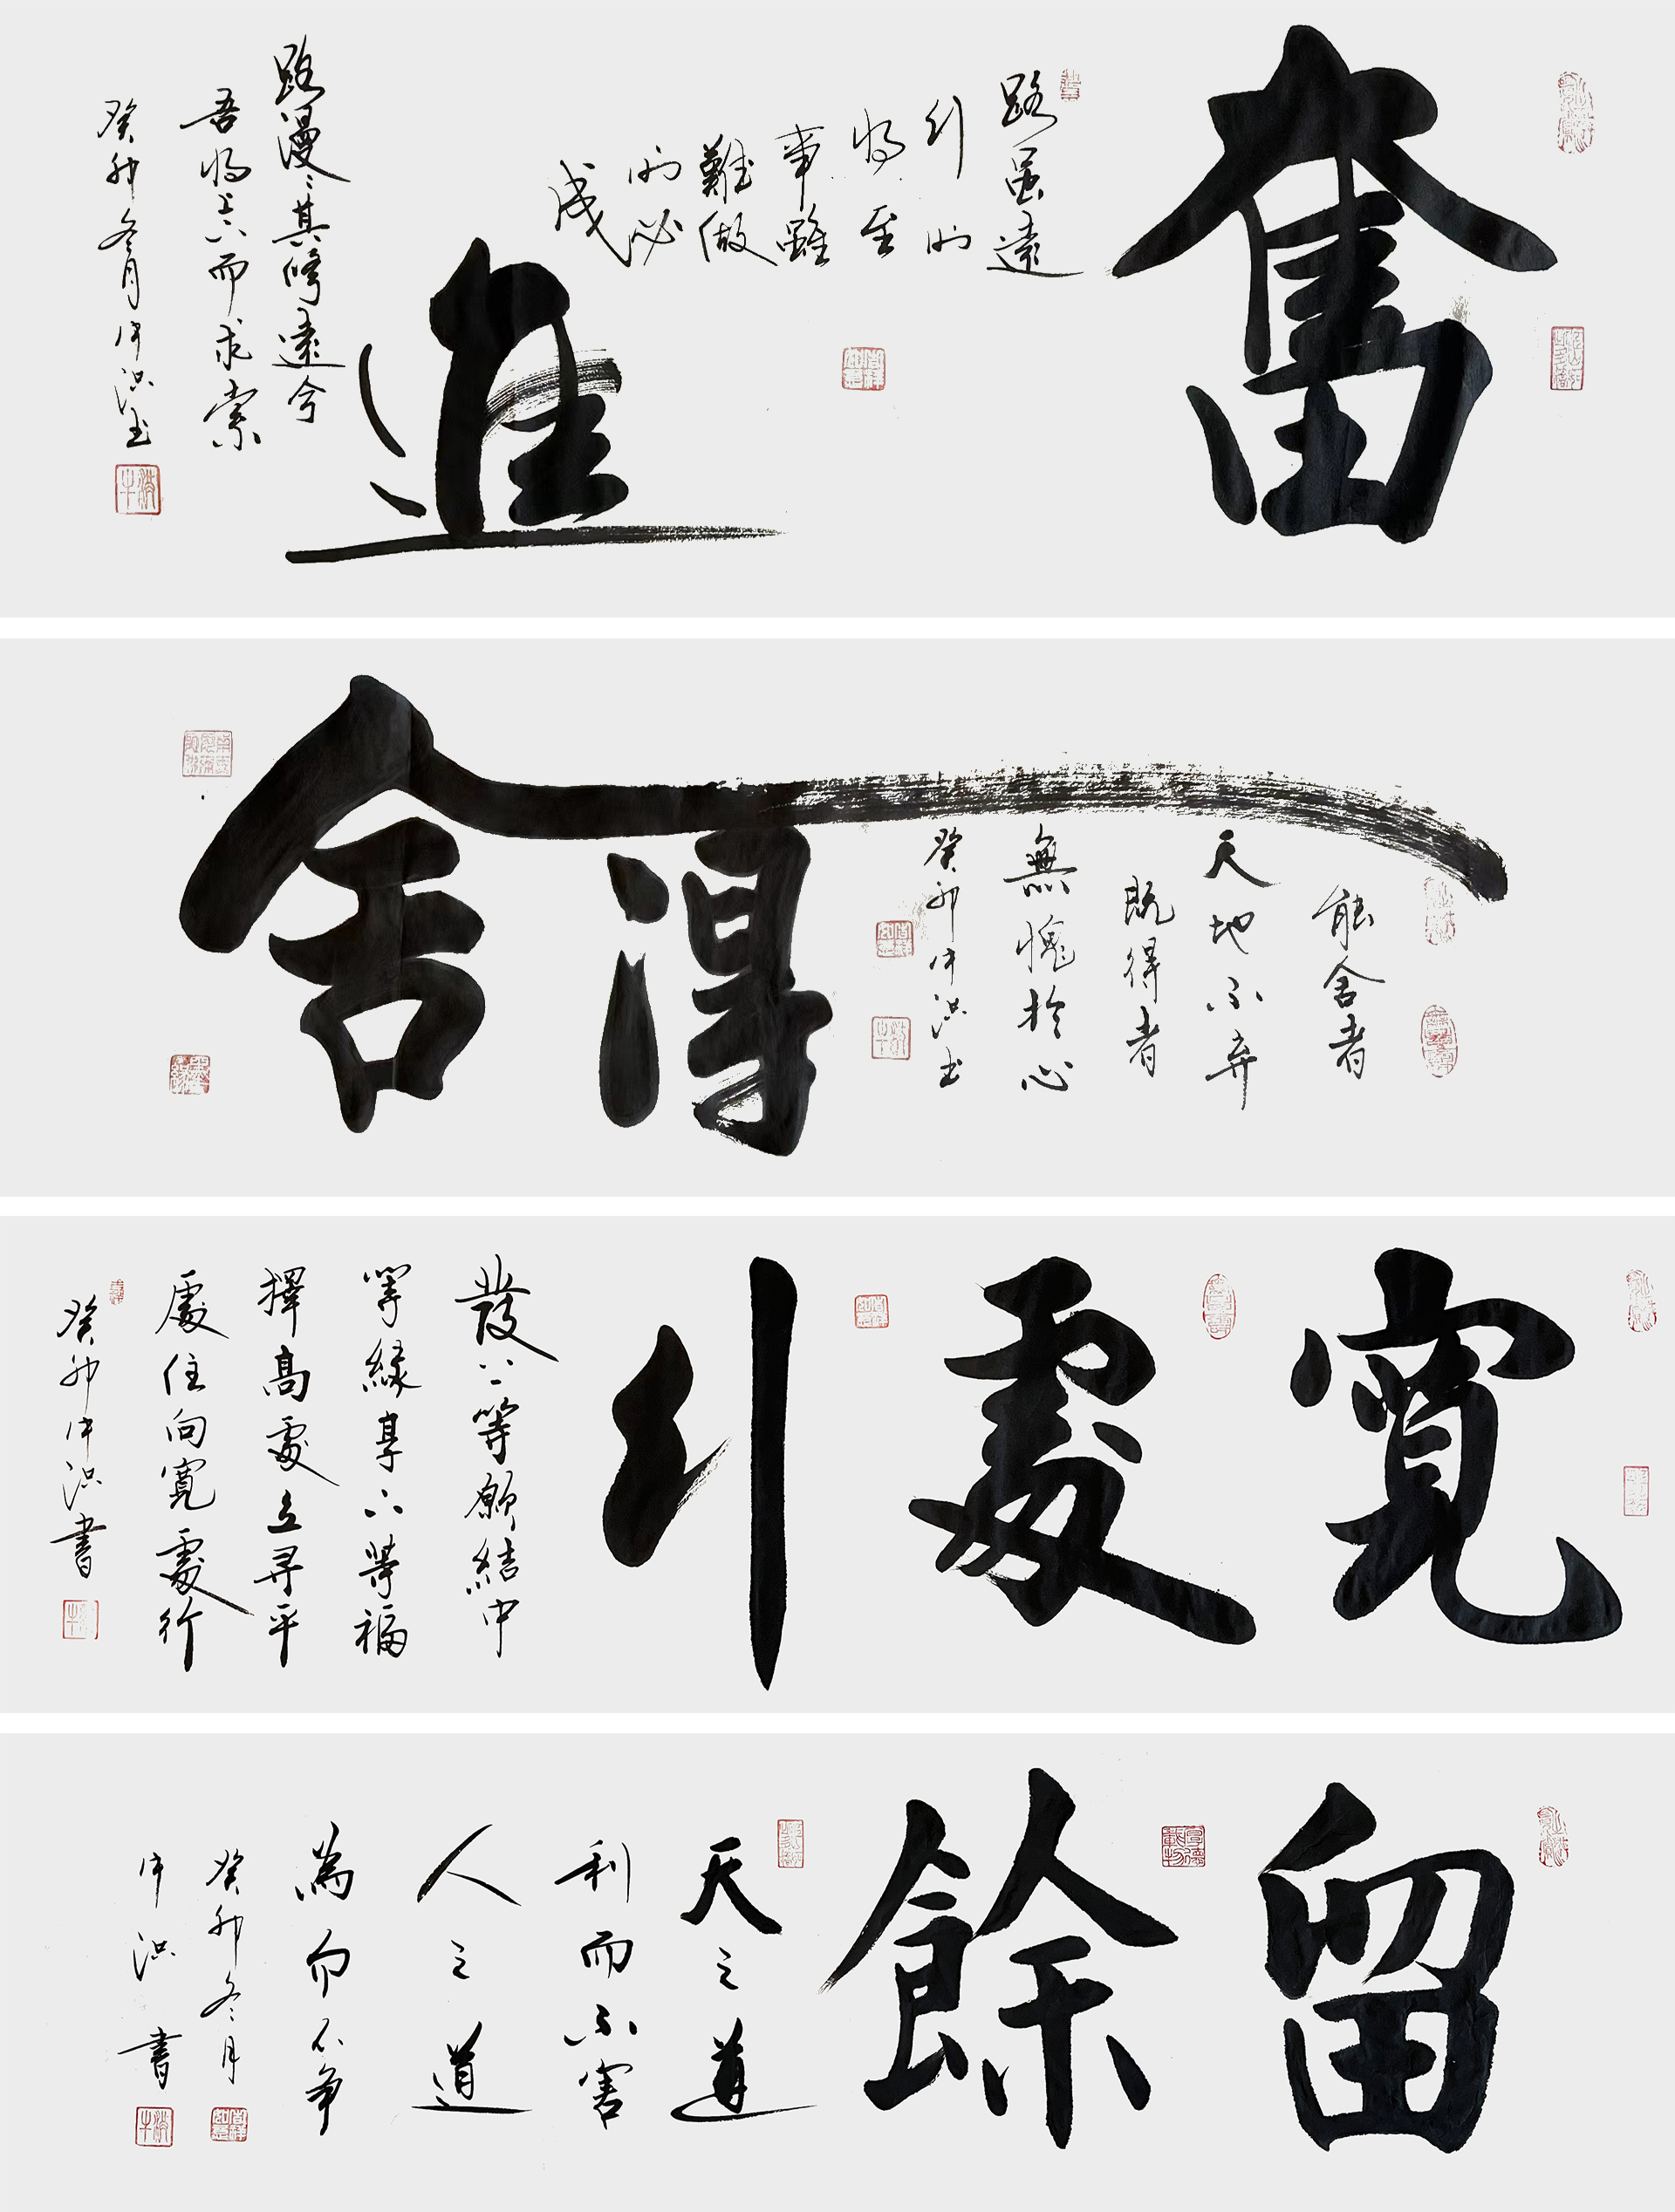 奮
路虽遠
行則
将至
事雖
難做
則必
成
進
路漫漫其修遠兮
吾将上下而求索
癸卯冬月仲洪书
舍得
能舍者
天地不弃
既得者
無愧於心
癸卯仲洪书
寬處行
發上等願結中
等緣享下等福
擇高處立尋平
處住向寬處行
癸卯仲洪書
留餘
厚德載物
天之道
利而不害
人之道
為而不争
癸卯冬月
仲洪書